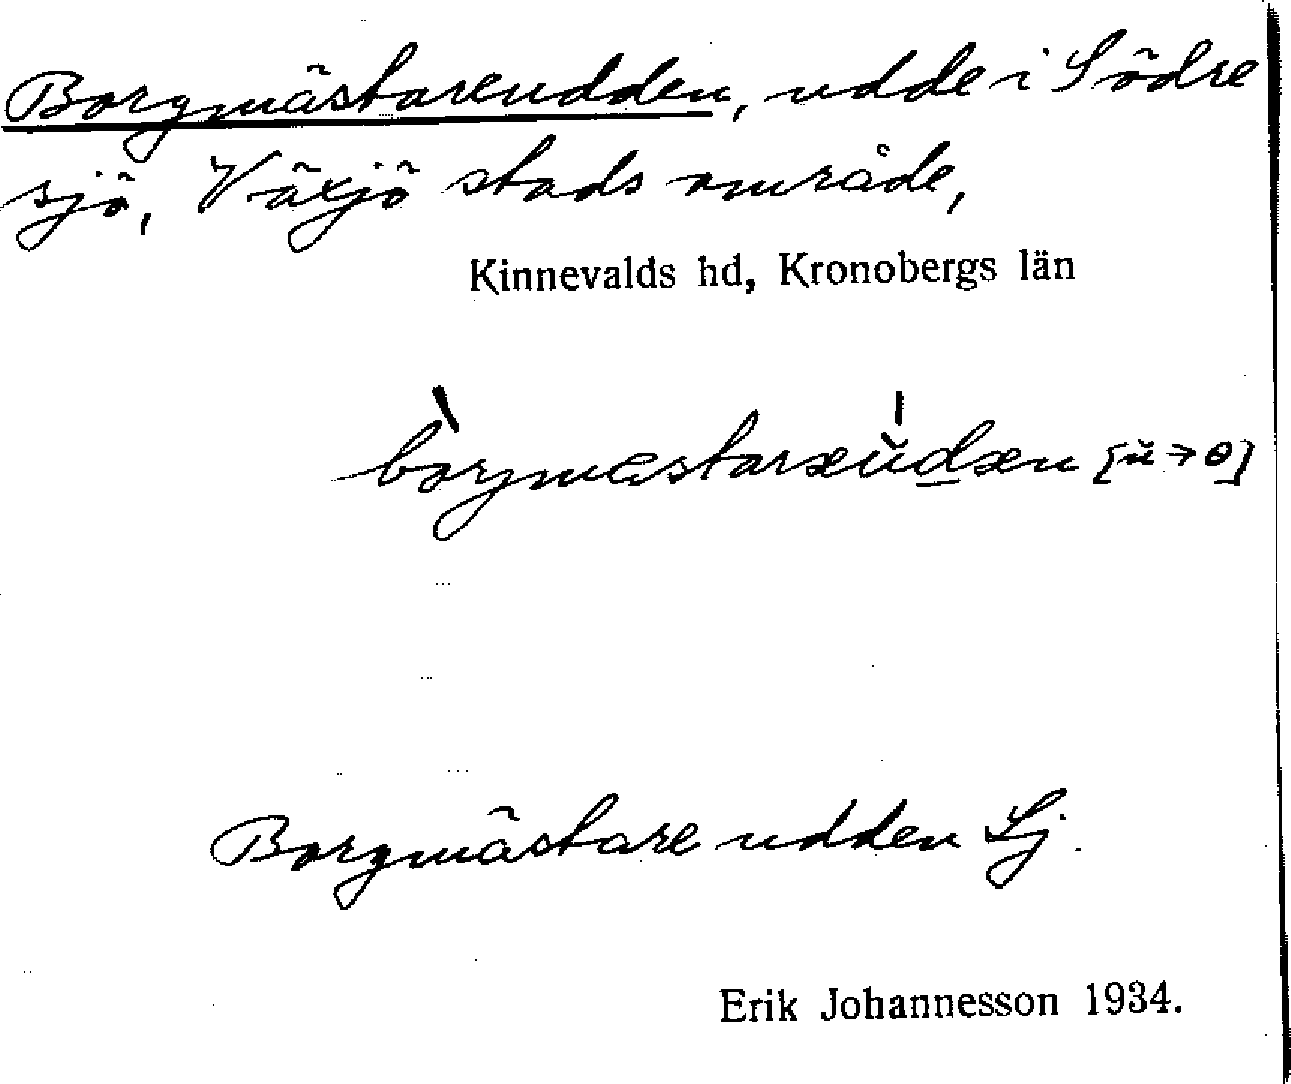 Borgmästareudden, udde i Södre
sjö, Växjö stads område,
Kinnevalds hd, Kronobergs län
bòrgmæstaræŭ́dæn [ŭ → ɵ]
Borgmästare udden Lj.
Erik Johannesson 1934.